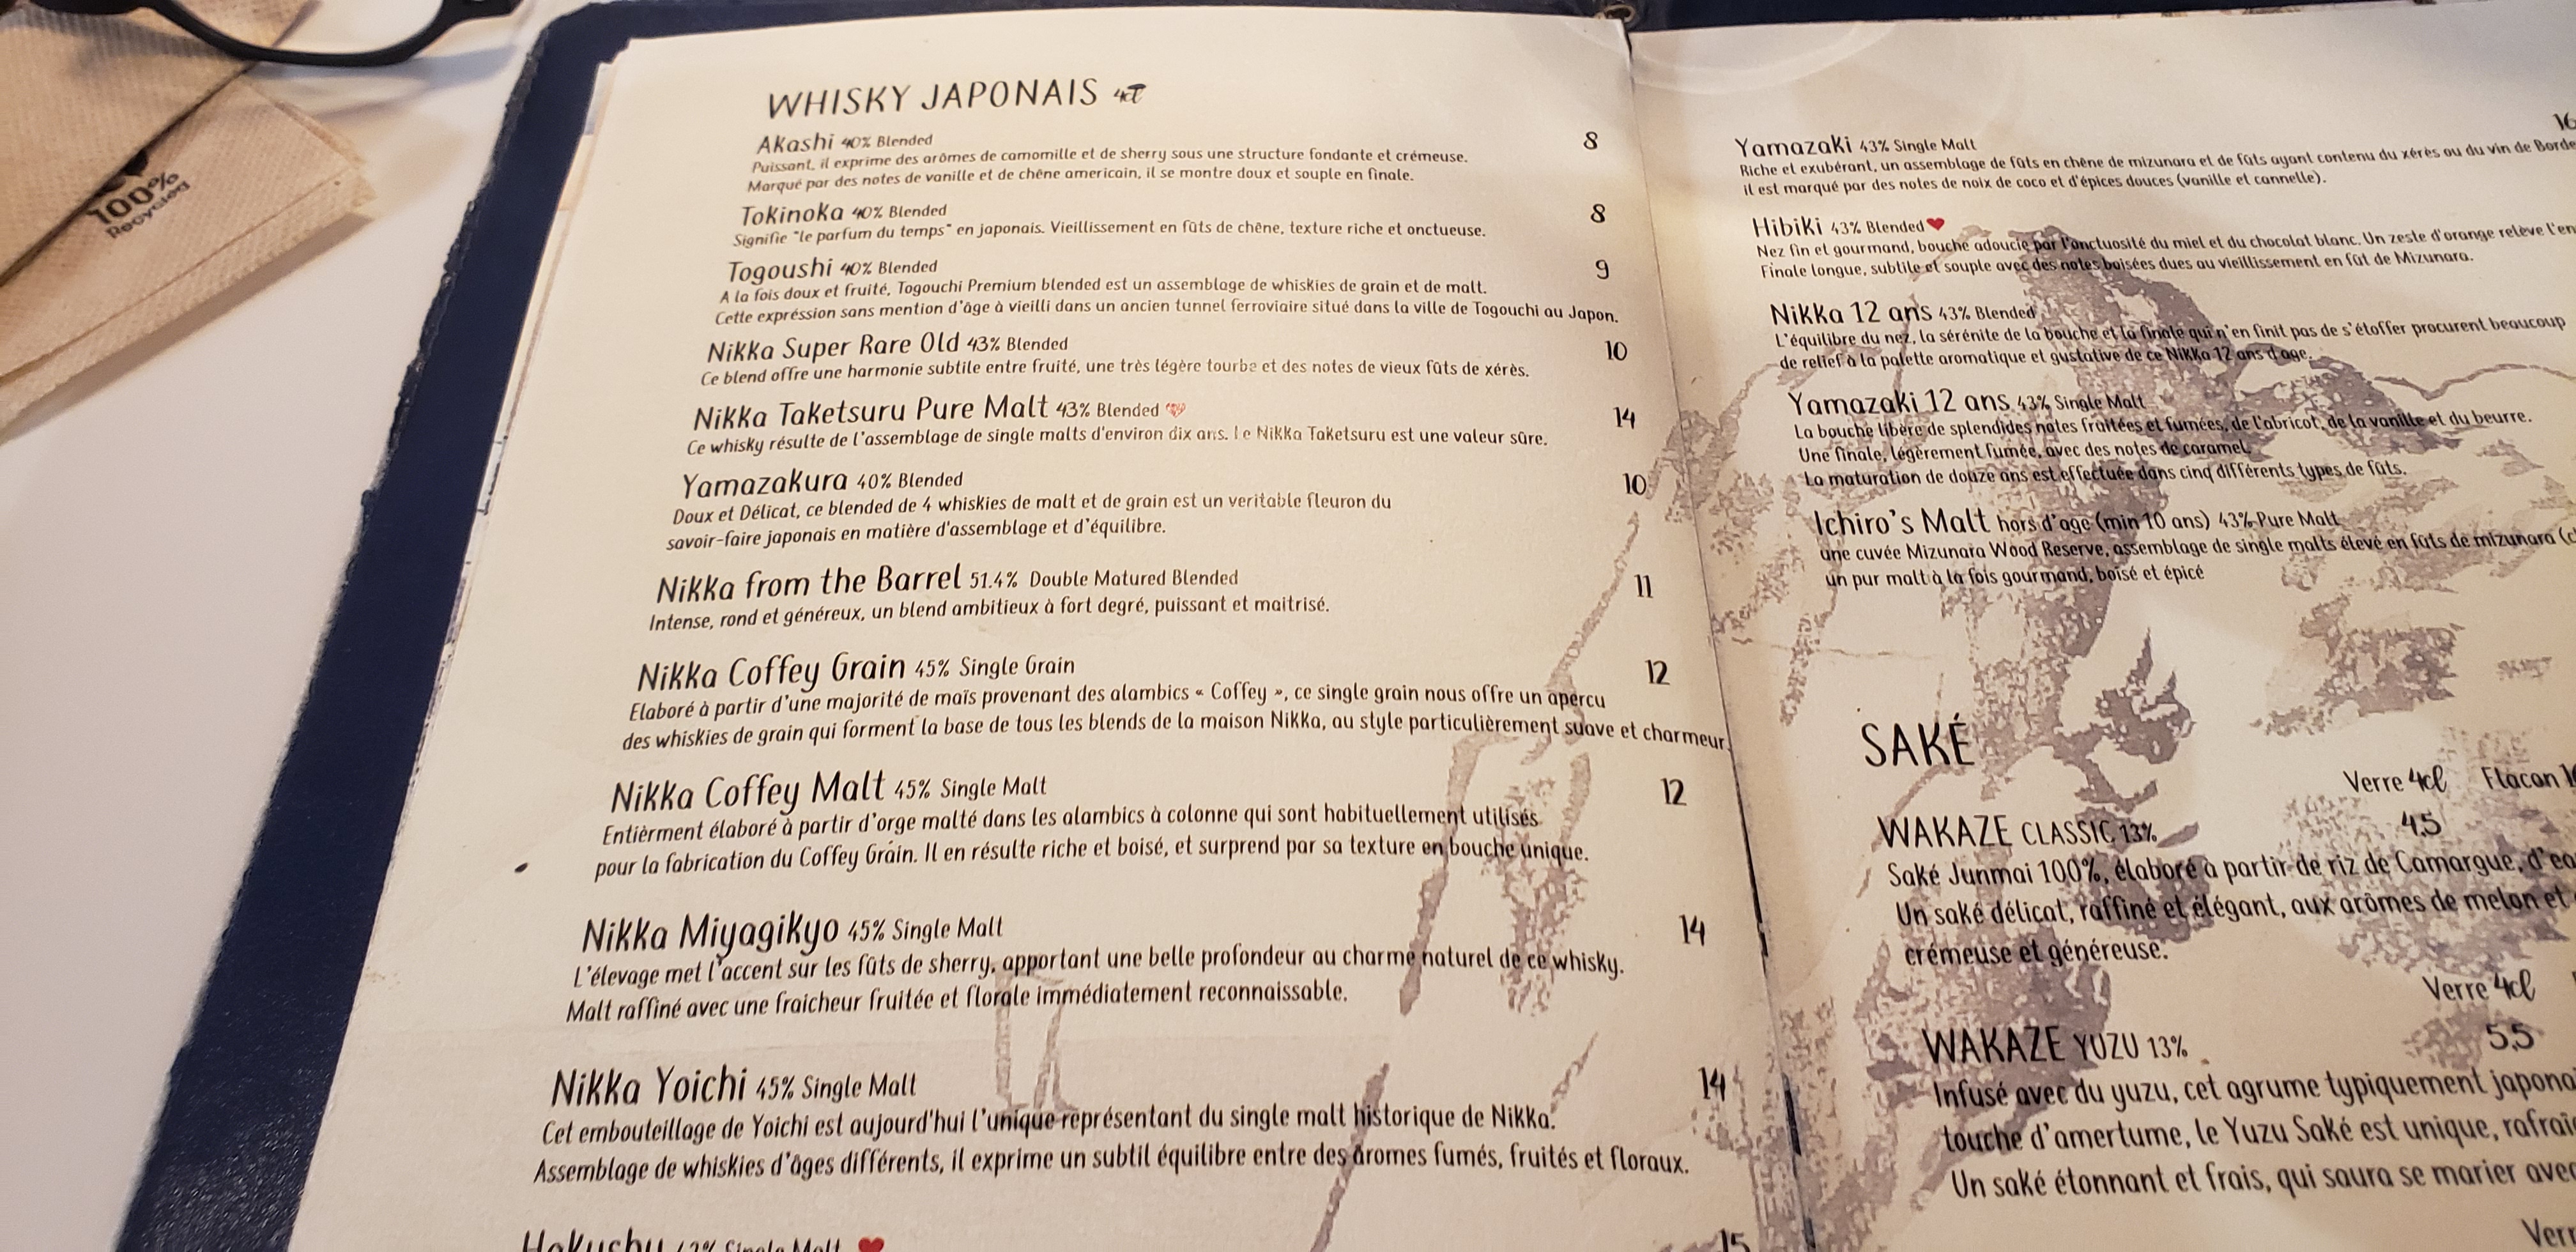 100%
Recycled
WHISKY JAPONAIS 4cl
Akashi 40% Blended 8
Puissant, il exprime des arômes de camomille et de sherry sous une structure fondante et crémeuse.
Marqué par des notes de vanille et de chêne americain, il se montre doux et souple en finale.
Tokinoka 40% Blended 8
Signifie "le parfum du temps" en japonais. Vieillissement en fûts de chêne, texture riche et onctueuse.
Togoushi 40% Blended 9
A la fois doux et fruité, Togouchi Premium blended est un assemblage de whiskies de grain et de malt.
Cette expréssion sans mention d'âge à vieilli dans un ancien tunnel ferroviaire situé dans la ville de Togouchi au Japon.
Nikka Super Rare Old 43% Blended 10
Ce blend offre une harmonie subtile entre fruité, une très légère tourbe et des notes de vieux fûts de xérès.
Nikka Taketsuru Pure Malt 43% Blended 14
Ce whisky résulte de l'assemblage de single malts d'environ dix ans. Le Nikka Taketsuru est une valeur sûre.
Yamazakura 40% Blended 10
Doux et Délicat, ce blended de 4 whiskies de malt et de grain est un veritable fleuron du
savoir-faire japonais en matière d'assemblage et d'équilibre.
Nikka from the Barrel 51.4% Double Matured Blended 11
Intense, rond et généreux, un blend ambitieux à fort degré, puissant et maitrisé.
Nikka Coffey Grain 45% Single Grain 12
Elaboré à partir d'une majorité de maïs provenant des alambics « Coffey », ce single grain nous offre un apercu
des whiskies de grain qui forment la base de tous les blends de la maison Nikka, au style particulièrement suave et charmeur.
Nikka Coffey Malt 45% Single Malt 12
Entièrment élaboré à partir d'orge malté dans les alambics à colonne qui sont habituellement utilisés
pour la fabrication du Coffey Grain. Il en résulte riche et boisé, et surprend par sa texture en bouche unique.
Nikka Miyagikyo 45% Single Malt 14
L'élevage met l'accent sur les fûts de sherry, apportant une belle profondeur au charme naturel de ce whisky.
Malt raffiné avec une fraicheur fruitée et florale immédiatement reconnaissable.
Nikka Yoichi 45% Single Malt 14
Cet embouteillage de Yoichi est aujourd'hui l'unique représentant du single malt historique de Nikka.
Assemblage de whiskies d'âges différents, il exprime un subtil équilibre entre des aromes fumés, fruités et floraux.
Hakushu 43% Single Malt 15
Yamazaki 43% Single Malt 16
Riche et exubérant, un assemblage de fûts en chêne de mizunara et de fûts ayant contenu du xérès ou du vin de Borde
il est marqué par des notes de noix de coco et d'épices douces (vanille et cannelle).
Hibiki 43% Blended
Nez fin et gourmand, bouche adoucie par l'onctuosité du miel et du chocolat blanc. Un zeste d'orange relève l'en
Finale longue, subtile et souple avec des notes boisées dues au vieillissement en fût de Mizunara.
Nikka 12 ans 43% Blended
L'équilibre du nez, la sérénite de la bouche et la finale qui n'en finit pas de s'étoffer procurent beaucoup
de relief à la palette aromatique et gustative de ce Nikka 12 ans d'age.
Yamazaki 12 ans 43% Single Malt
La bouche libère de splendides notes fruitées et fumées, de l'abricot, de la vanille et du beurre.
Une finale, légèrement fumée, avec des notes de caramel.
La maturation de douze ans est effectuée dans cinq différents types de fûts.
Ichiro's Malt hors d'age (min 10 ans) 43% Pure Malt
une cuvée Mizunara Wood Reserve, assemblage de single malts élevé en fûts de mizunara (c
un pur malt à la fois gourmand, boisé et épicé
SAKÉ
Verre 4cl Flacon 1
WAKAZE CLASSIC 13% 4,5
Saké Junmai 100%, élaboré à partir de riz de Camargue, d'ea
Un saké délicat, raffiné et élégant, aux arômes de melon et
crémeuse et généreuse.
Verre 4cl
WAKAZE YUZU 13% 5,5
Infusé avec du yuzu, cet agrume typiquement japona
touche d'amertume, le Yuzu Saké est unique, rafraî
Un saké étonnant et frais, qui saura se marier avec
Verr